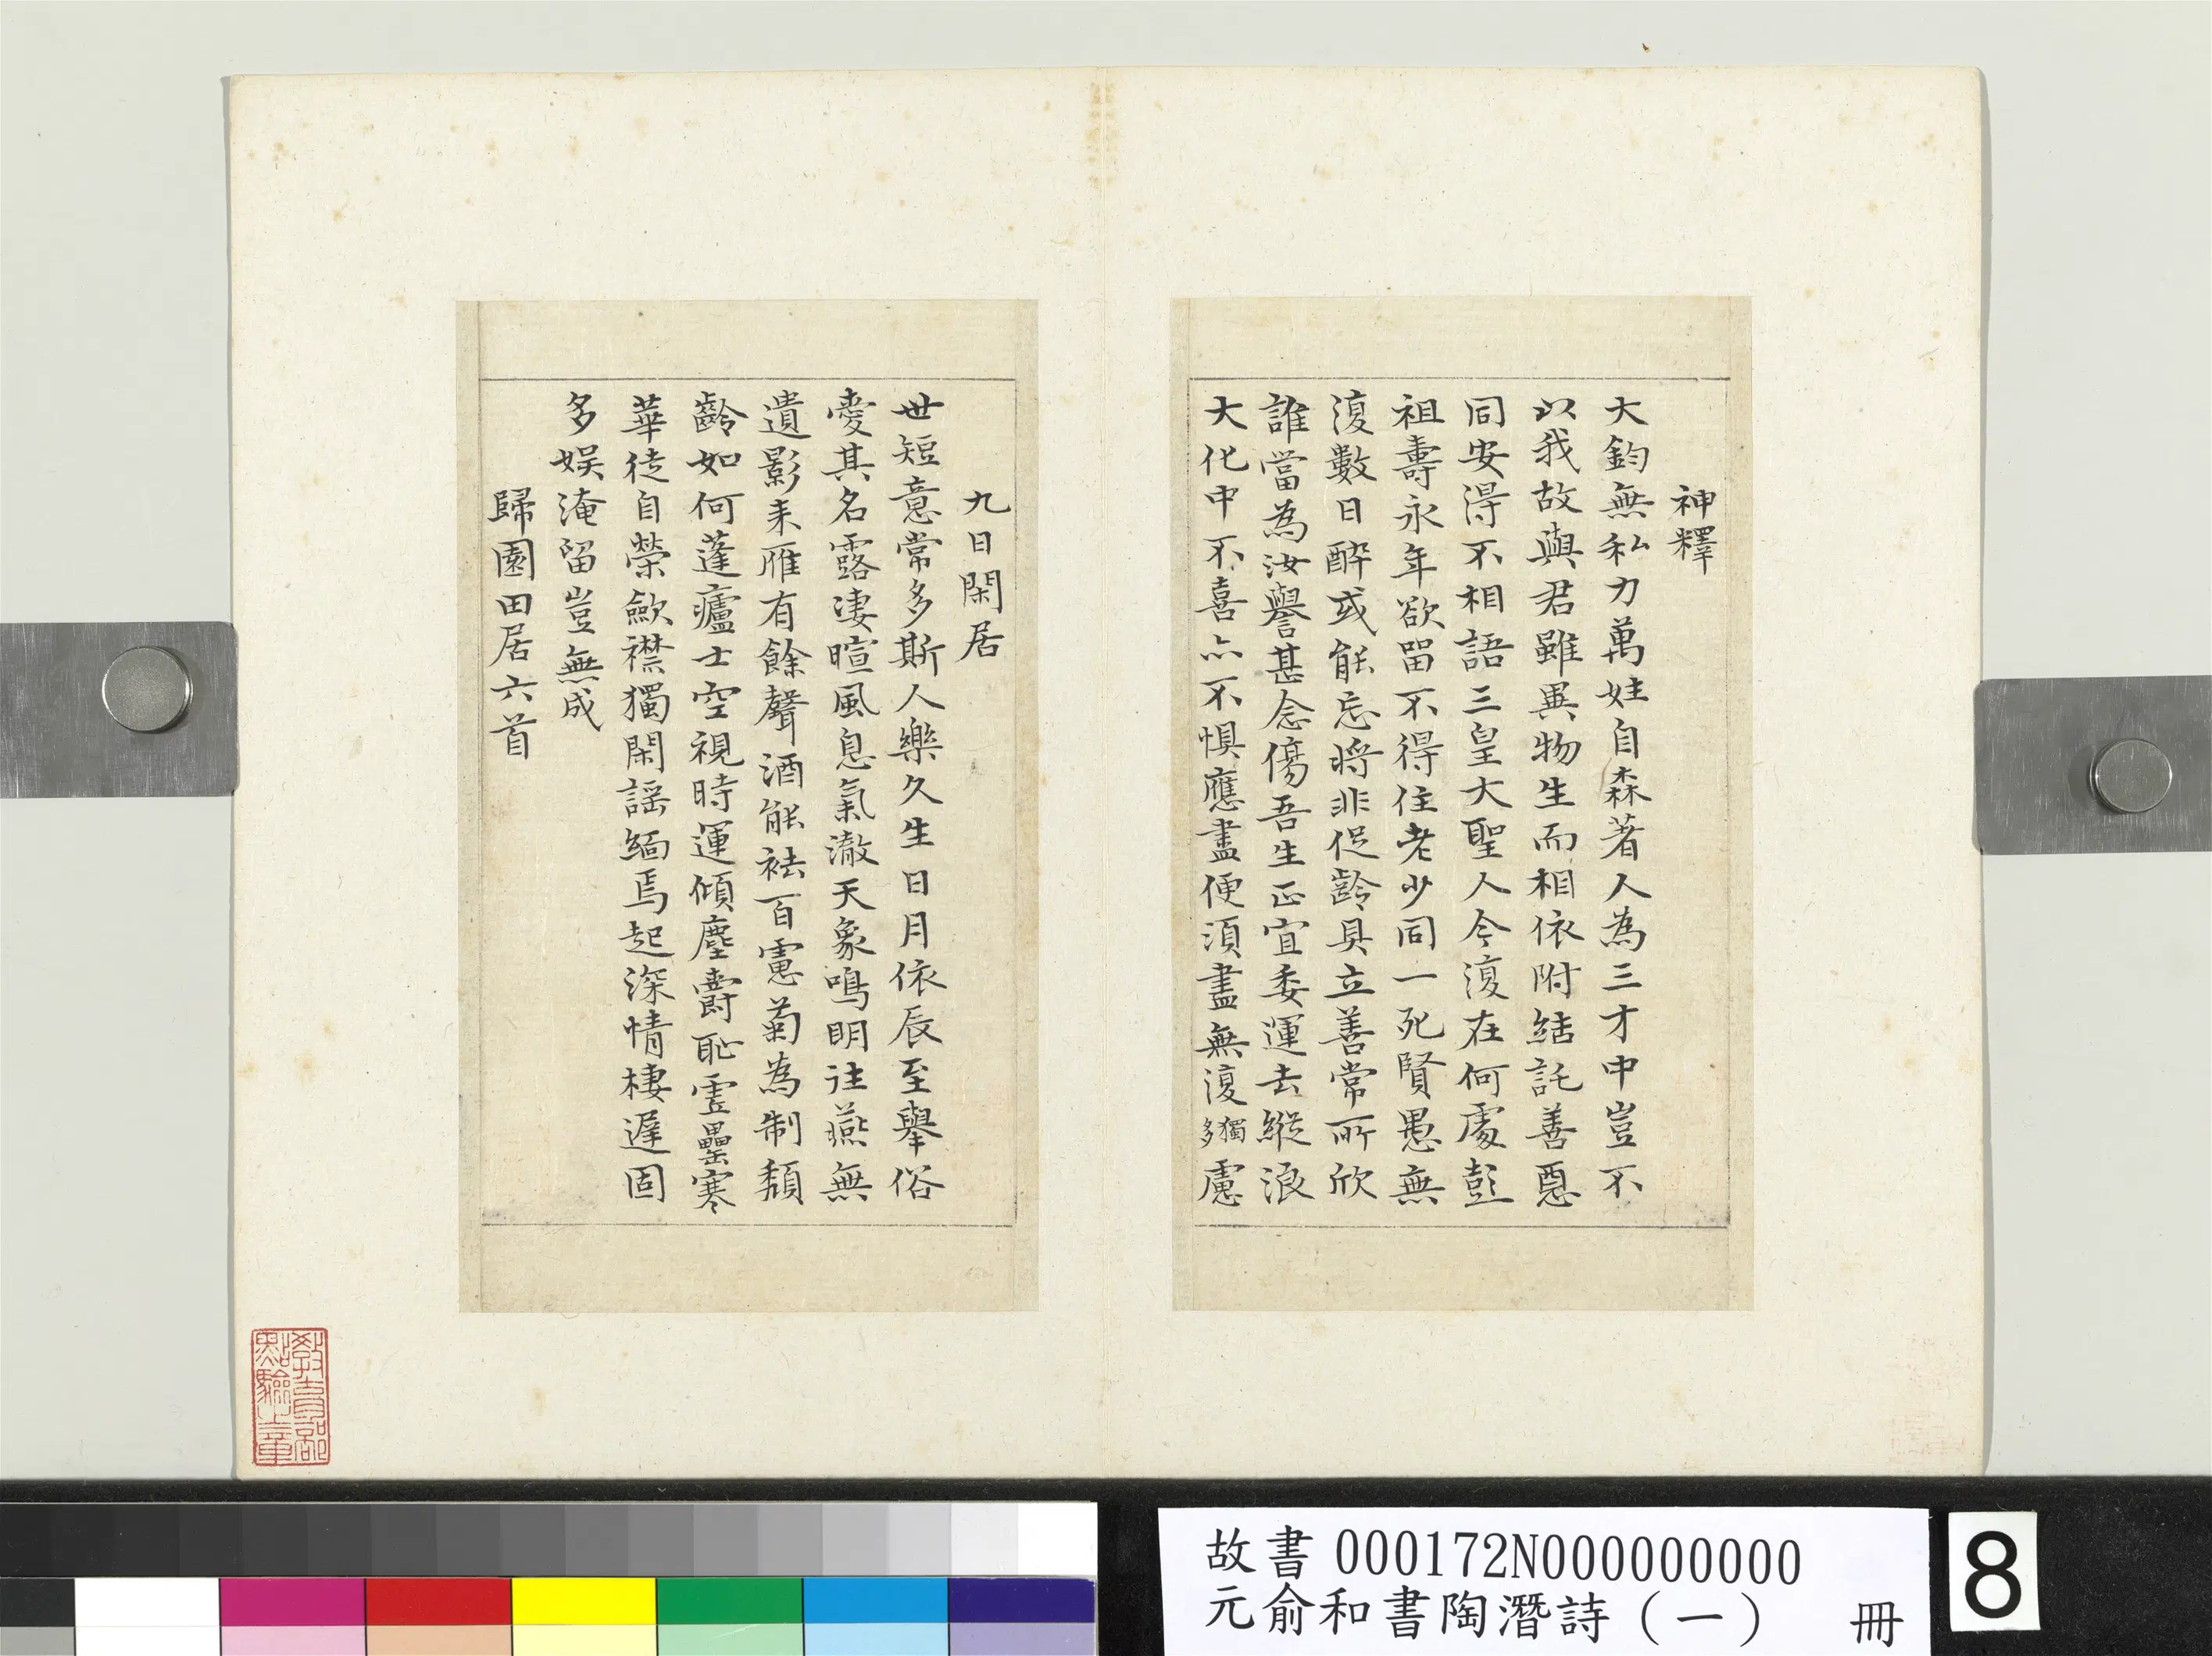 神釋
大鈞無私力萬姓自森著人為三才中豈不
以我故與君雖異物生而相依附結託善惡
同安得不相語三皇大聖人今復在何處彭
祖壽永年欲留不得住老少同一死賢愚無
復數日醉或能忘將非促齡具立善常所欣
誰當為汝譽甚念傷吾生正宜委運去縱浪
大化中不喜亦不懼應盡便須盡無復獨多慮
九日閑居
世短意常多斯人樂久生日月依辰至舉俗
愛其名露淒暄風息氣澈天象鳴明往燕無
遺影来雁有餘聲酒能祛百慮菊為制頹
齡如何蓬廬士空視時運傾塵爵恥虛罍寒
華徒自榮歛襟獨閑謡緬焉起深情棲遲固
多娱淹留豈無成
歸園田居六首
教育部
點驗之章
故書 000172N000000000
元俞和書陶潛詩（一） 冊
8